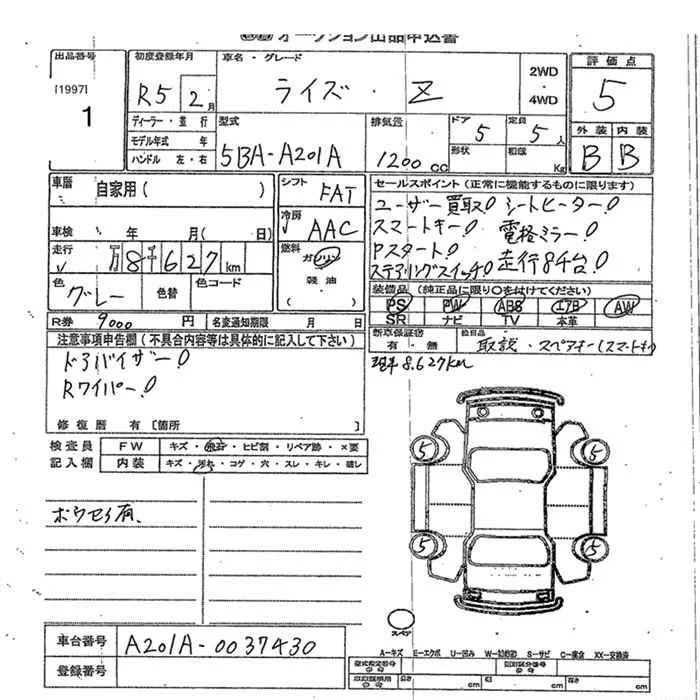 オークション出品申込書
出品番号
[1997]
1
初度登録年月
R5 2月
車名・グレード
ライズ・Z
2WD
4WD
評価点
5
外装 内装
B B
ディーラー・並行
モデル年式・年
ハンドル 左・右
型式
5BA-A201A
排気量
1200cc
ドア
5
形状
定員
5人
Kg
車歴
自家用( )
車検 年 月( 日)
走行
8千627km
色
グレー
色替
色コード
シフト
FAT
冷房
AAC
燃料
ガソリン
軽油
セールスポイント(正常に機能するものに限ります)
ユーザー買取! シートヒーター!
スマートキー! 電格ミラー!
Pスタート! 走行8千台!
ステアリングスイッチ!
装備品(純正品に限り○を付けてください)
PS PW ABS エアB AW
SR ナビ TV 本革
R券 9000 円 名変通知期限 月 日
新車保証書
有・無
取説・スペアキー(スマートキー)
現車8.627km
注意事項申告欄(不具合内容等は具体的に記入して下さい)
ドアバイザー!
Rワイパー!
修復歴 有[箇所
検査員
記入欄
FW キズ・飛石・ヒビ割・リペア跡・×要
内装 キズ・汚れ・コゲ・穴・スレ・キレ・破レ
ボウセイ有.
5
5
5
5
スペア
車台番号 A201A-0037430
登録番号
A－キズ E－エクボ U－凹み W－補修跡 S－サビ C－腐食 XX－交換済
型式指定番号
類別区分番号
長さ cm
幅 cm
高さ cm